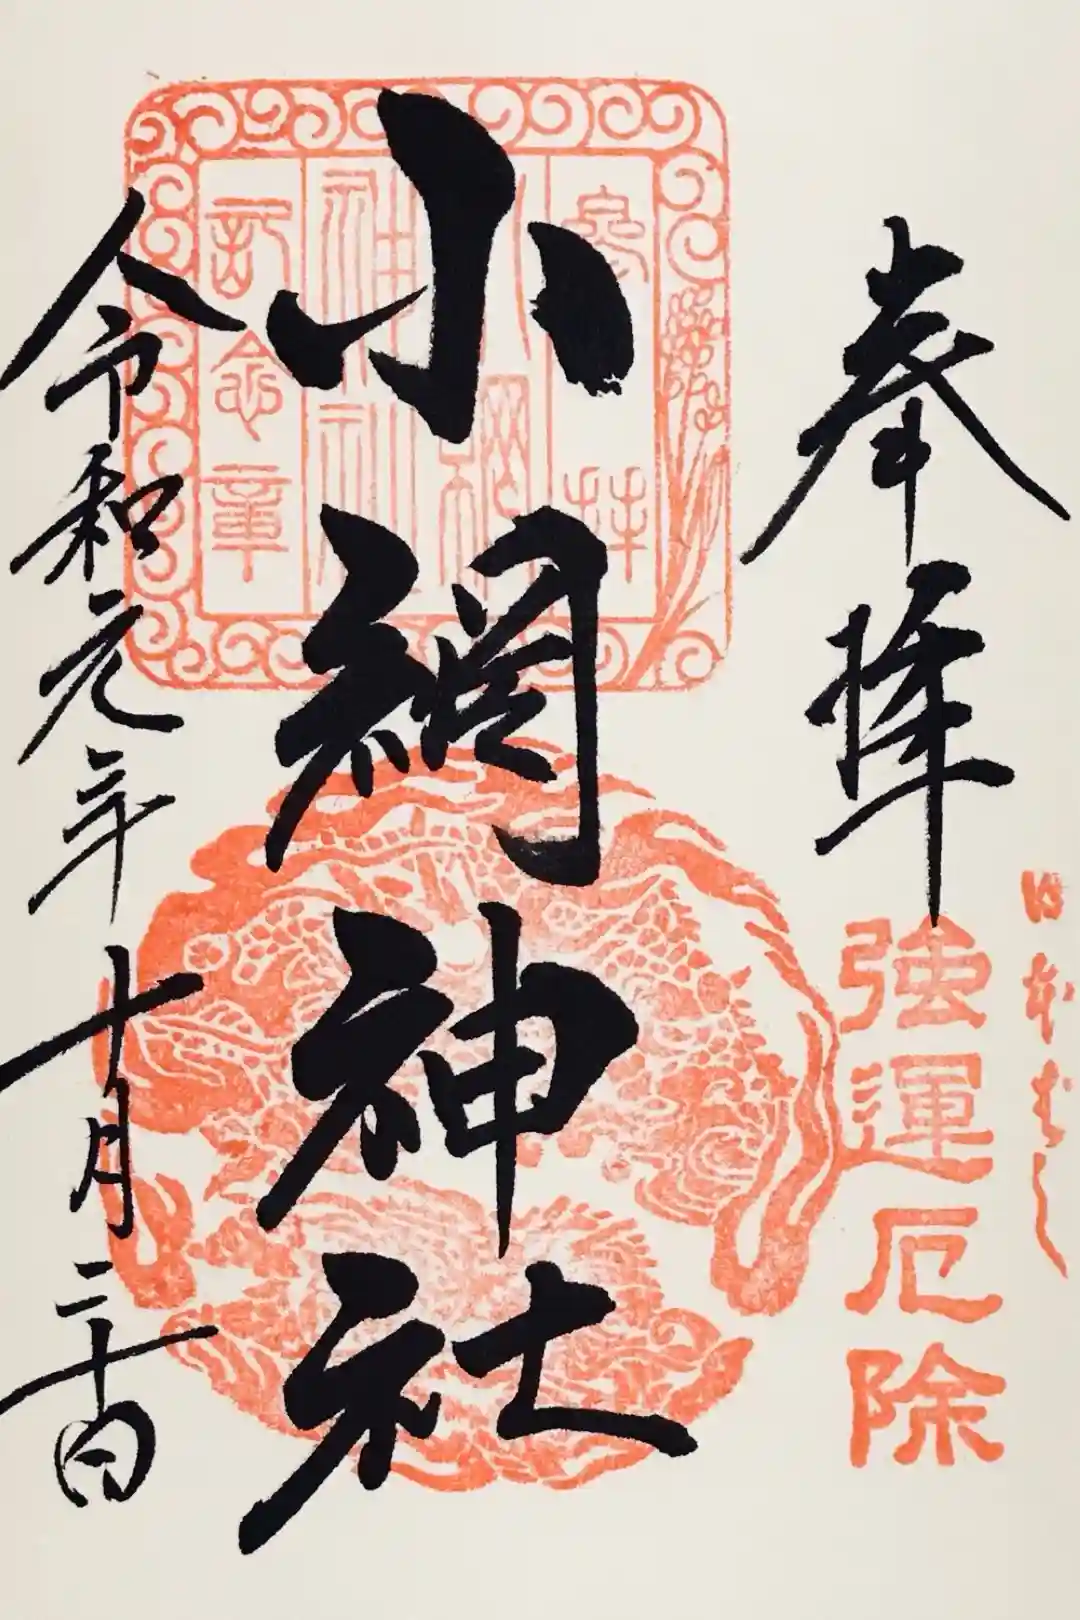 日本ばし
奉拝
強運厄除
小網神社
參拝
小網
神社
記念章
令和元年十月二十日